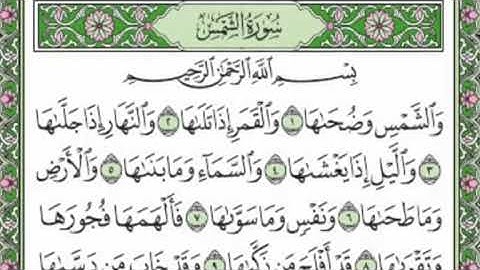 سُورَةُ الشَّمْسِ
بِسْمِ ٱللَّهِ ٱلرَّحْمَٰنِ ٱلرَّحِيمِ
وَٱلشَّمْسِ وَضُحَىٰهَا ۝١ وَٱلْقَمَرِ إِذَا تَلَىٰهَا ۝٢ وَٱلنَّهَارِ إِذَا جَلَّىٰهَا
۝٣ وَٱلَّيْلِ إِذَا يَغْشَىٰهَا ۝٤ وَٱلسَّمَآءِ وَمَا بَنَىٰهَا ۝٥ وَٱلْأَرْضِ
وَمَا طَحَىٰهَا ۝٦ وَنَفْسٍ وَمَا سَوَّىٰهَا ۝٧ فَأَلْهَمَهَا فُجُورَهَا
وَتَقْوَىٰهَا ۝٨ قَدْ أَفْلَحَ مَن زَكَّىٰهَا ۝٩ وَقَدْ خَابَ مَن دَسَّىٰهَا